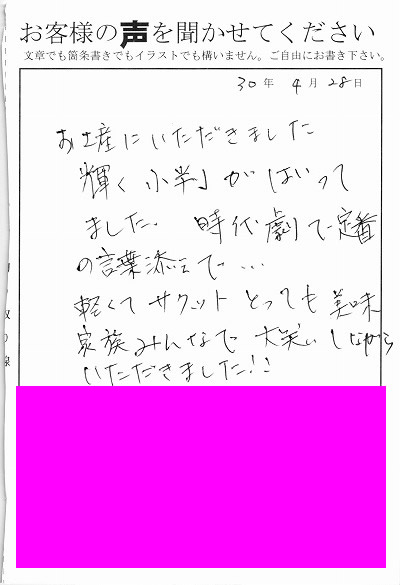 お客様の声を聞かせてください
文章でも箇条書きでもイラストでも構いません。ご自由にお書き下さい。
30年 4月 28日
お土産にいただきました
輝く小判」がはいって
ました。 時代劇で定番
の言葉添えで…
軽くてサクット とっても美味
家族みんなで 大笑いしながら
いただきました!!